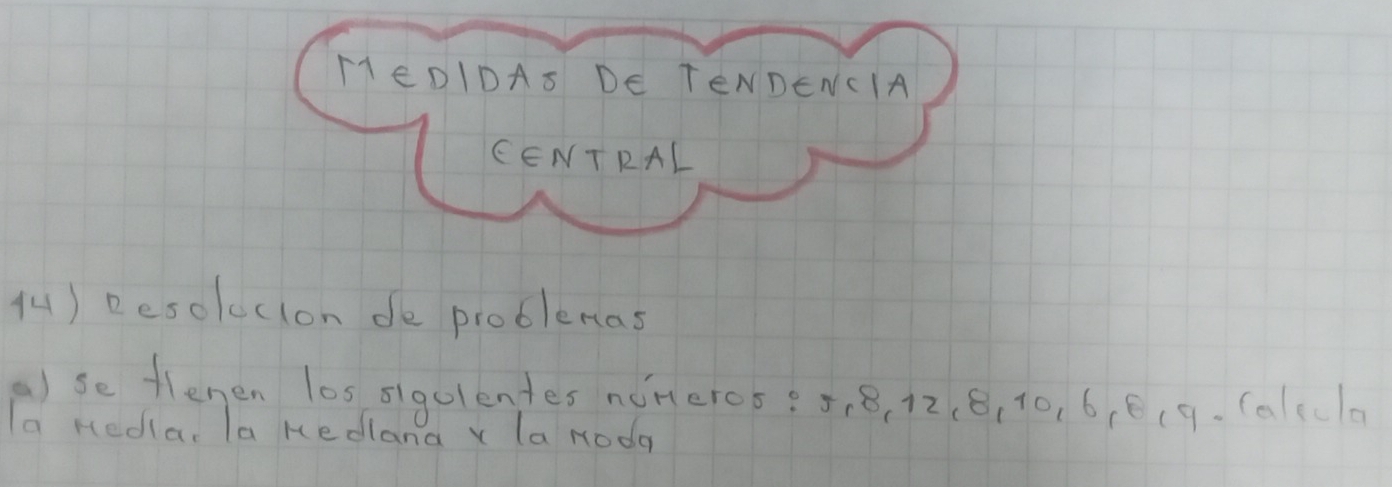 MEDIDAS DE TENDENCIA
CENTRAL
14) Resolucion de problemas
a) se tienen los siguientes números: 5, 8, 12, 8, 10, 6, 8, 9. Calcula
la media, la mediana y la moda